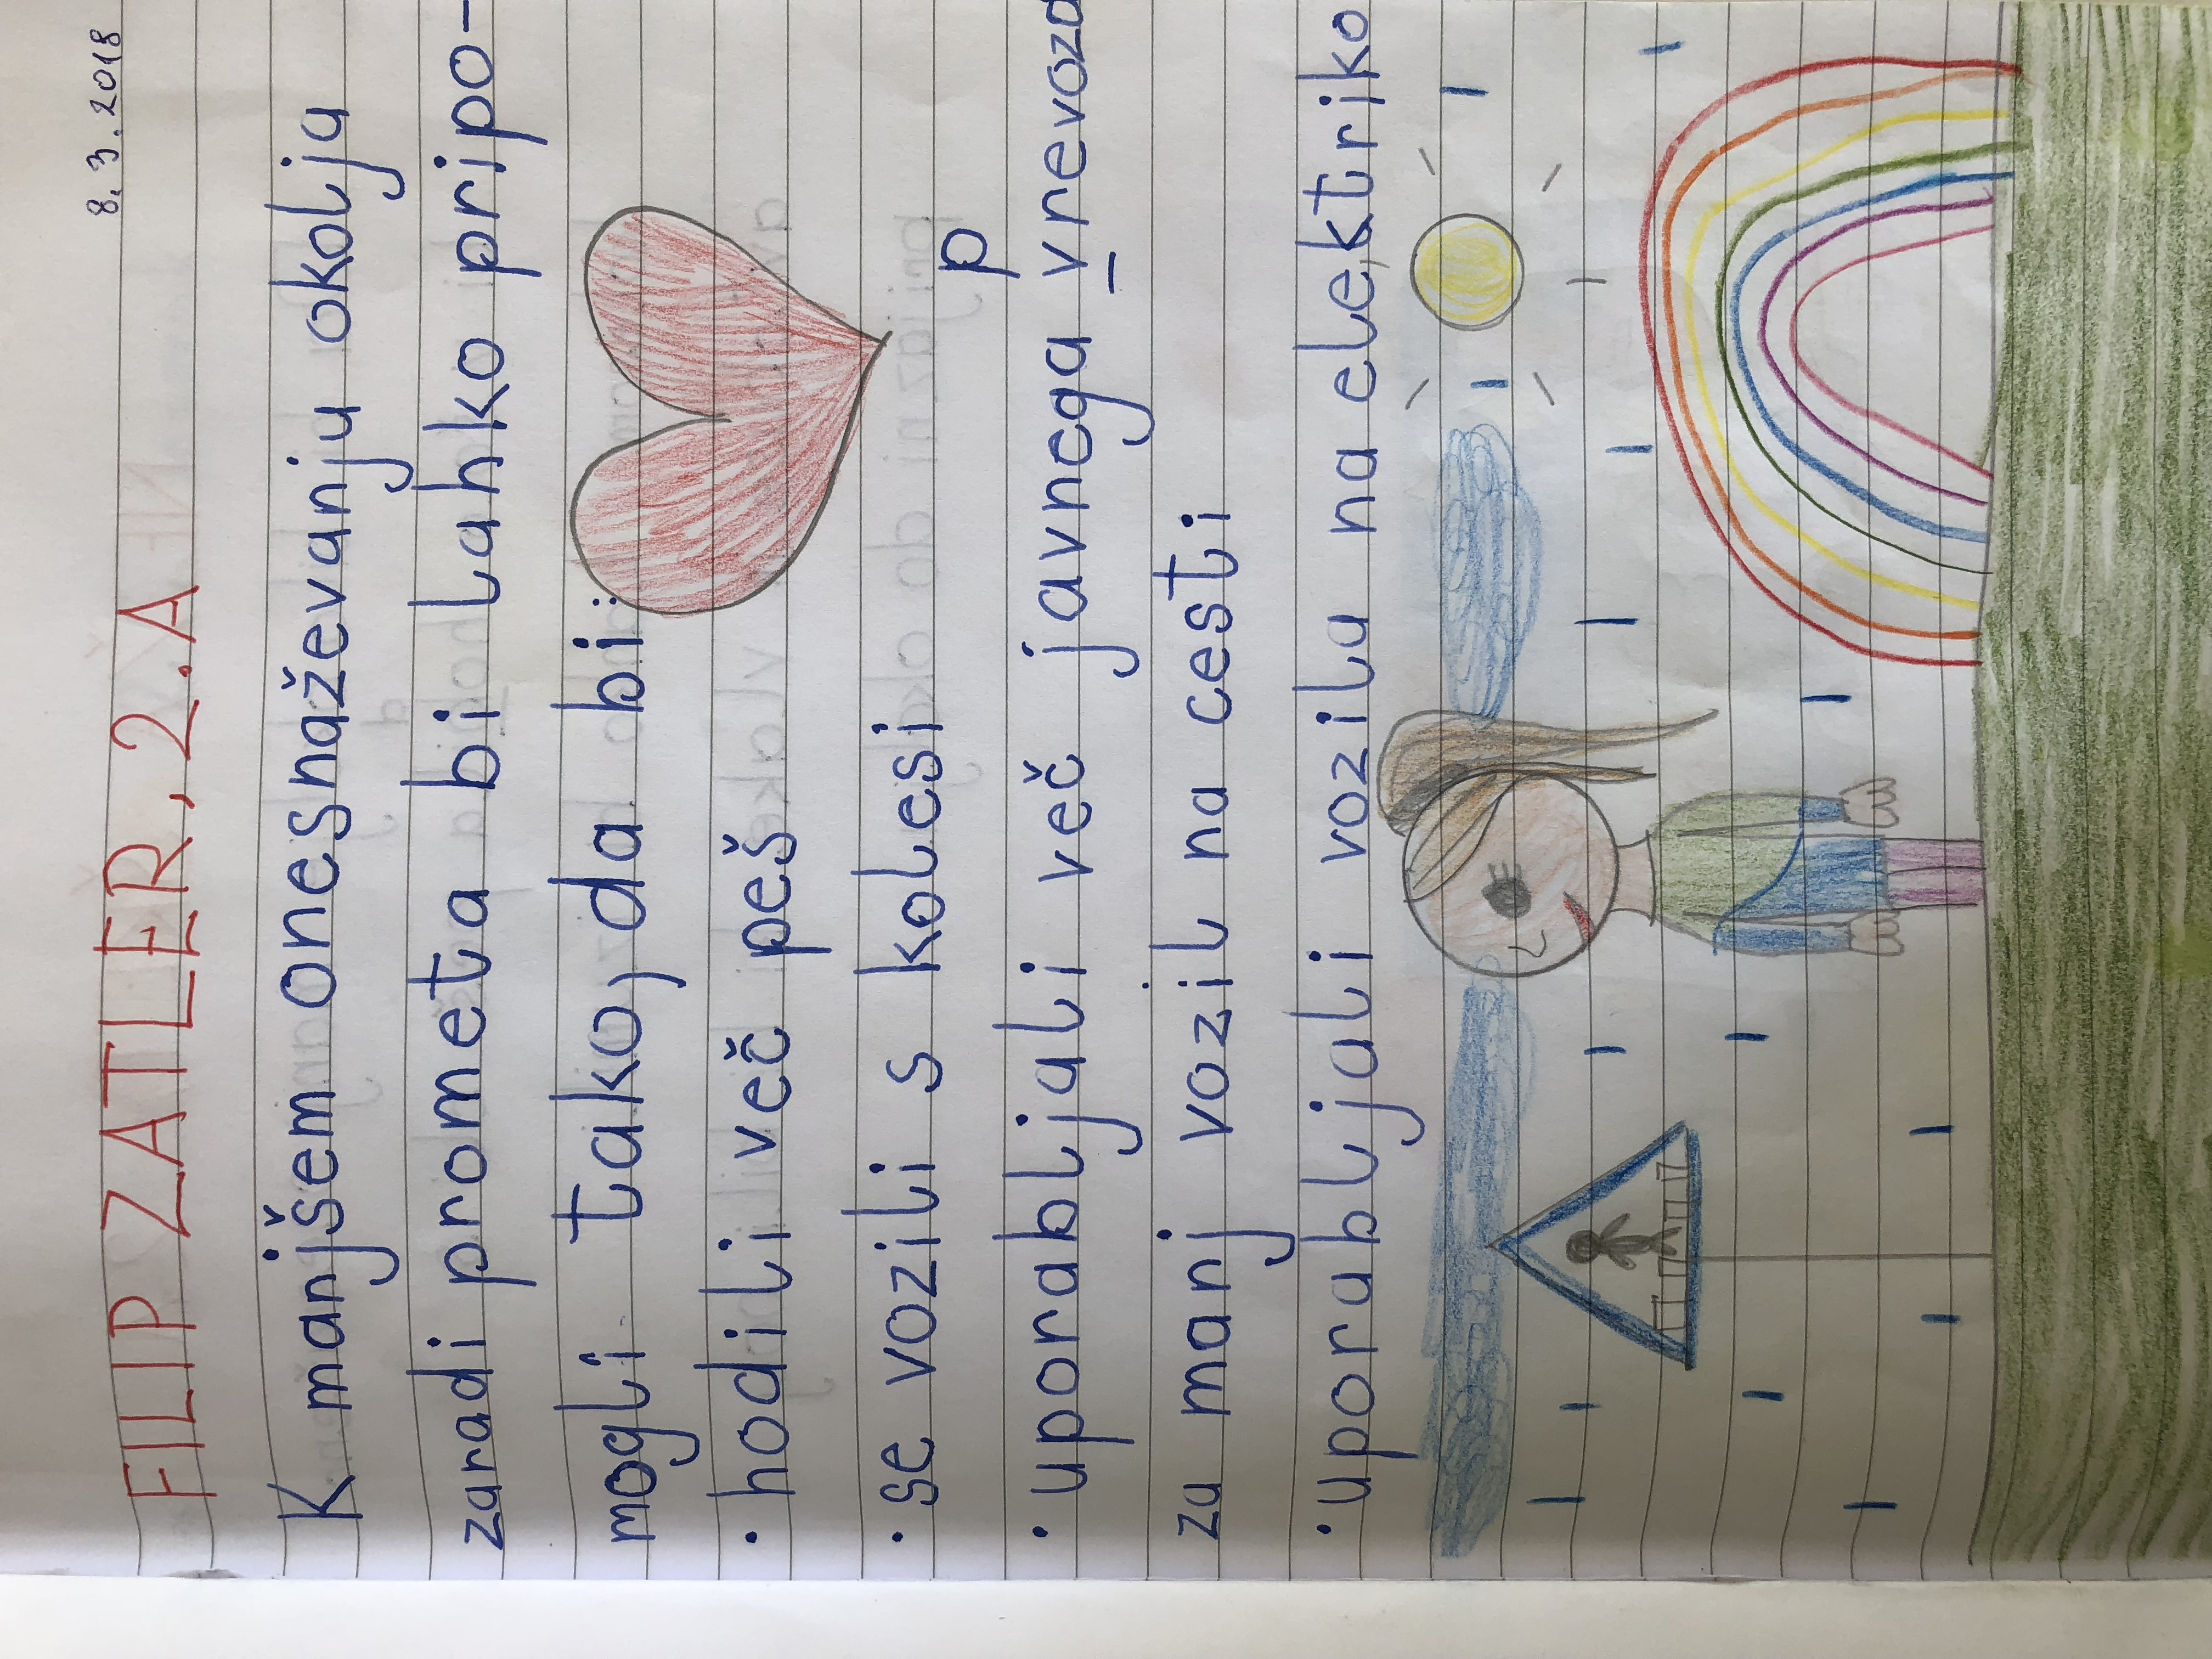 8.3.2018
FILIP ZATLER, 2.A
K manjšem onesnaževanju okolja
zaradi prometa bi lahko pripo-
mogli tako, da bi:
• hodili več peš
• se vozili s kolesi
p
• uporabljali več javnega vrevoza
za manj vozil na cesti
• uporabljali vozila na elektriko